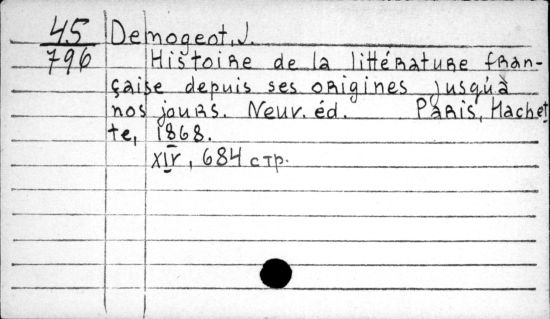 45 Demogeot, J.
796 Histoire de la littérature fran-
çaise depuis ses origines jusqu'à
nos jours. Neuv. éd. Paris, Hachet
te, 1868.
XIV, 684 стр.